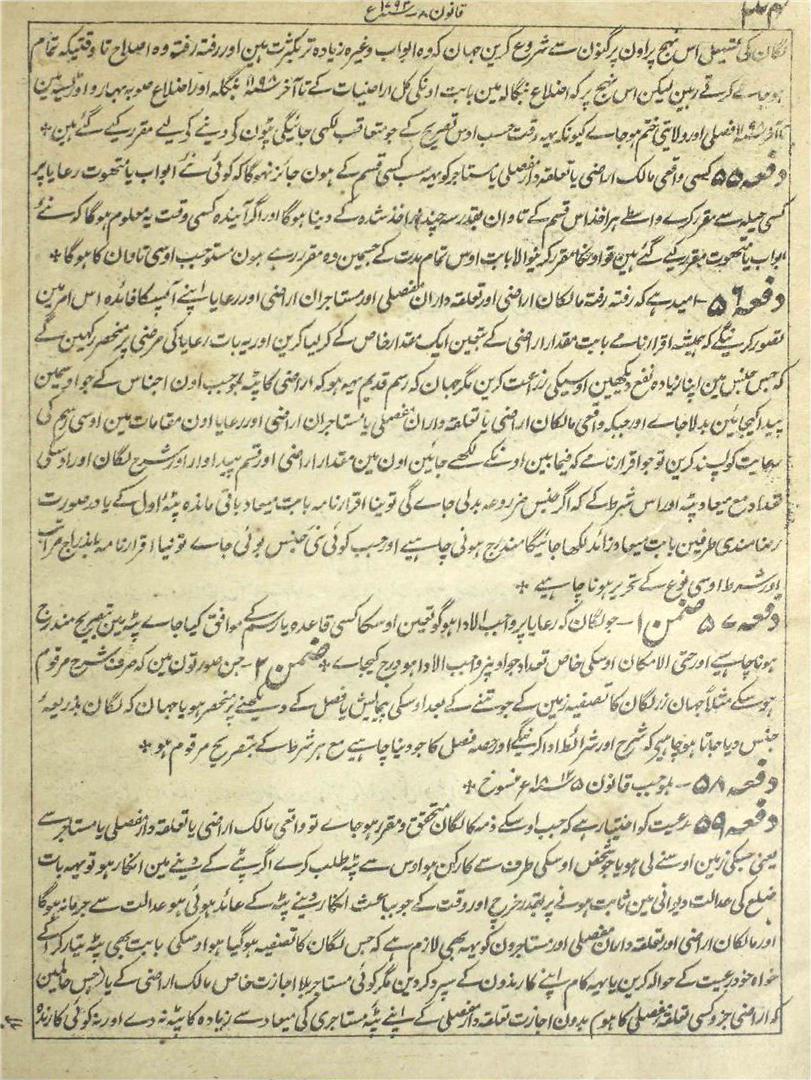 قانون ۸ سنہ ۱۷۹۳ع
لگان کی تفصیل اس نہج پر اون پرگنون سے شروع کرین جہان کہ وہ ابواب وغیرہ زیادہ تر بکثرت ہین اور رفتہ رفتہ وہ اصلاح تا وقتیکہ تمام
ہو جاے کرتے رہین لیکن اس نہج پر کہ اضلاع بنگالہ مین بابت اونکی کل اراضیات کے تا آخر ۱۱۹۸ بنگلہ اور اضلاع صوبہ بہار و اوڑیسہ مین
فصلی اور ولایتی ختم ہو جاے کیونکہ یہہ وقت حسب اوس تصریح کے جو متعاقب لکھی جائیگی پٹون کی دینے کے لیے مقرر کیے گئے ہین *
دفعہ ۵۵ کسی واقعی مالک اراضی یا تعلقہ دار مفصلی یا مستاجر کو یہہ سب کسی قسم کے ہون جائز نہوگا کہ کوئی نئے ابواب یا متھوت رعایا پر
کسی حیلہ سے مقرر کرے واسطے ہر اخذ اس قسم کے تاوان بقدر سہ چند اخذ شدہ کے دینا ہوگا اور اگر آیندہ کسی وقت یہ معلوم ہوگا کہ نئے
ابواب یا متھوت مقرر کیے گئے ہین تو اونکا مقرر کرنیوالا بابت اوس تمام مدت کے جسمین وہ مقرر رہے ہون مستوجب اوسی تاوان کا ہوگا *
دفعہ ۵۶ – امید ہے کہ رفتہ رفتہ مالکان اراضی اور تعلقہ داران مفصلی اور مستاجران اراضی اور رعایا اپنے آپسکا فائدہ اس امر مین
تصور کرینگے کہ ہمیشہ اقرار نامے بابت مقدار اراضی کے تعین ایک مقدار خاص کے کر لیا کرین اور یہ بات رعایا کی مرضی پر منحصر رکھین گے
کہ جس جنس مین اپنا زیادہ نفع دیکھین اوسیکی زراعت کرین مگر جہان کہ رسم قدیم یہہ ہو کہ اراضی کا پٹہ بموجب اون اجناس کے جو اوسمین
پیدا کیجائین بدلا جاے اور جبکہ واقعی مالکان اراضی یا تعلقہ داران مفصلی یا مستاجران اراضی اور رعایا اون مقامات مین اوسی رسم کی
رعایت کو پسند کرین تو جو اقرار نامے کہ فیمابین اونکے لکھے جائین اون مین مقدار اراضی اور قسم پیداوار اور شرح لگان اور اوسکی
تعداد مع میعاد پٹہ اور اس شرط کے کہ اگر جنس مزروعہ بدلی جاے گی تو نیا اقرار نامہ بابت میعاد باقی ماندہ پٹہ اول کے یا در صورت
رضامندی طرفین بابت میعاد زائد لکھا جائیگا مندرج ہونی چاہیے اور جب کوئی نئی جنس بوئی جاے تو نیا اقرار نامہ باندراج مراتب
اور شرط اوسی نوع کے تحریر ہونا چاہیے *
دفعہ ۵۷ ضمن ۱ – جو لگان کہ رعایا پر واجب الادا ہو گو تعین اوسکا کسی قاعدہ یا رسم کے موافق کیا جاے پٹہ مین بتصریح مندرج
ہونا چاہیے اور حتی الامکان اوسکی خاص تعداد جو اونپر واجب الادا ہو درج کیجاے * ضمن ۲ – جن صورتون مین کہ صرف شرح مرقوم
ہو سکے مثلاً جہان زر لگان کا تصفیہ زمین کے جوتنے کے بعد اوسکی پیمایش یا فصل کے دیکھنے پر منحصر ہو یا جہان کہ لگان بذریعہ
جنس دیا جاتا ہو چاہیے کہ شرح اور شرائط ادا کرنیکے اور حصہ فصل کا جو دینا چاہیے مع ہر شرط کے بتصریح مرقوم ہو *
دفعہ ۵۸ – بموجب قانون ۵ ۱۸۱۲ع منسوخ *
دفعہ ۵۹ رعیت کو اختیار ہے کہ جب اوسکے ذمہ کا لگان متحقق و مقرر ہو جاے تو واقعی مالک اراضی یا تعلقہ دار مفصلی یا مستاجر سے
یعنی جسکی زمین اوسنے لی ہو یا جو شخص اوسکی طرف سے کارکن ہو اوس سے پٹہ طلب کرے اگر پٹے کے دینے مین انکار ہو تو یہہ بات
ضلع کی عدالت دیوانی مین ثابت ہونے پر بقدر خرچ اور وقت کے جو بباعث انکار دینے پٹہ کے عائد ہوئی ہو عدالت سے جرمانہ ہوگا
اور مالکان اراضی اور تعلقہ داران مفصلی اور مستاجرون کو یہہ بھی لازم ہے کہ جس لگان کا تصفیہ ہو گیا ہو اوسکی بابت بھی پٹہ تیار کر کے
خواہ خود رعیت کے حوالہ کرین یا یہہ کام اپنے کارندون کے سپرد کر دین مگر کوئی مستاجر بلا اجازت خاص مالک اراضی کے یا (جس حال مین
کہ اراضی جزو کسی تعلقہ مفصلی کا ہو) بدون اجازت تعلقہ دار مفصلی کے اپنے پٹہ مستاجری کی میعاد سے زیادہ کا پٹہ نہ دے اور نہ کوئی کارندہ